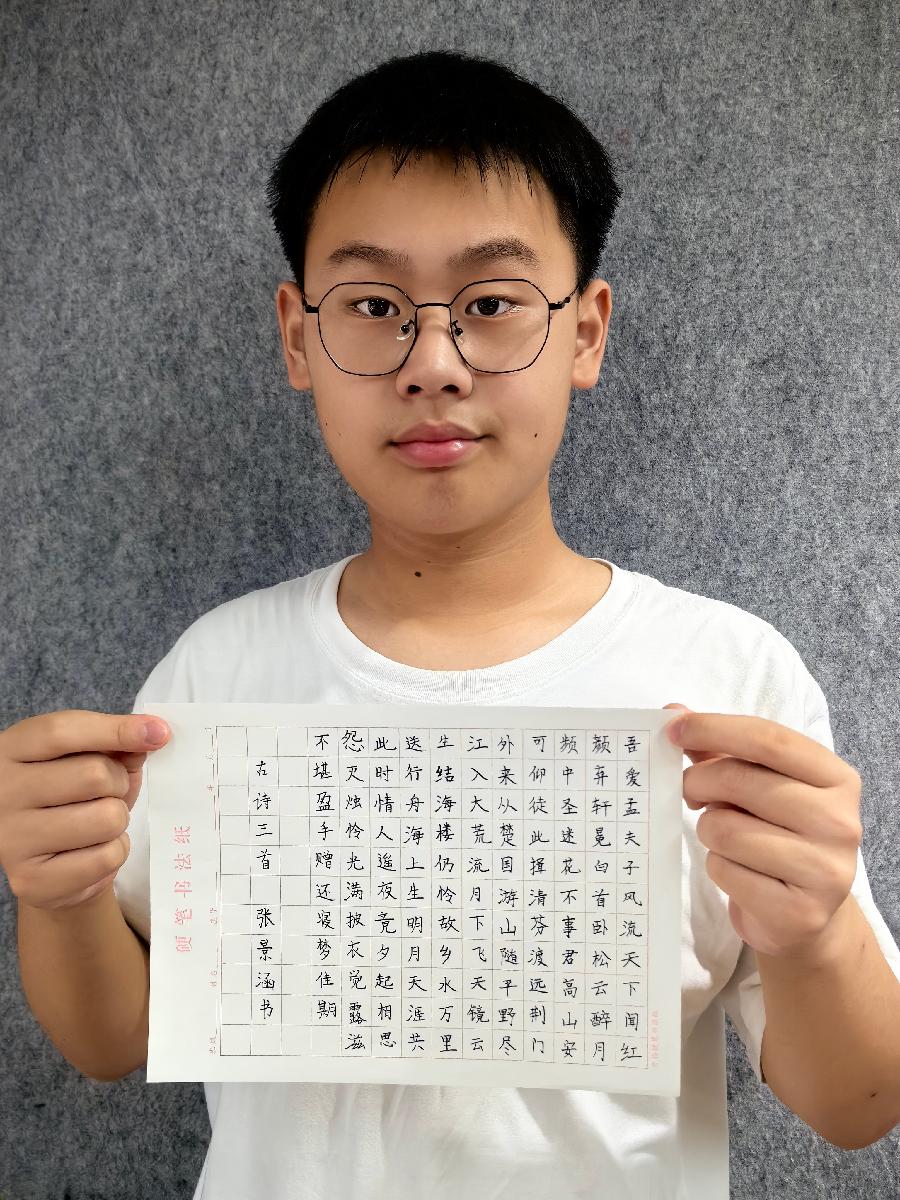 吾爱孟夫子风流天下闻红
颜弃轩冕白首卧松云醉月
频中圣迷花不事君高山安
可仰徒此揖清芬渡远荆门
外来从楚国游山随平野尽
江入大荒流月下飞天镜云
生结海楼仍怜故乡水万里
送行舟海上生明月天涯共
此时情人遥夜竟夕起相思
怨灭烛怜光满披衣觉露滋
不堪盈手赠还寝梦佳期
古诗三首 张景涵书
硬笔书法纸